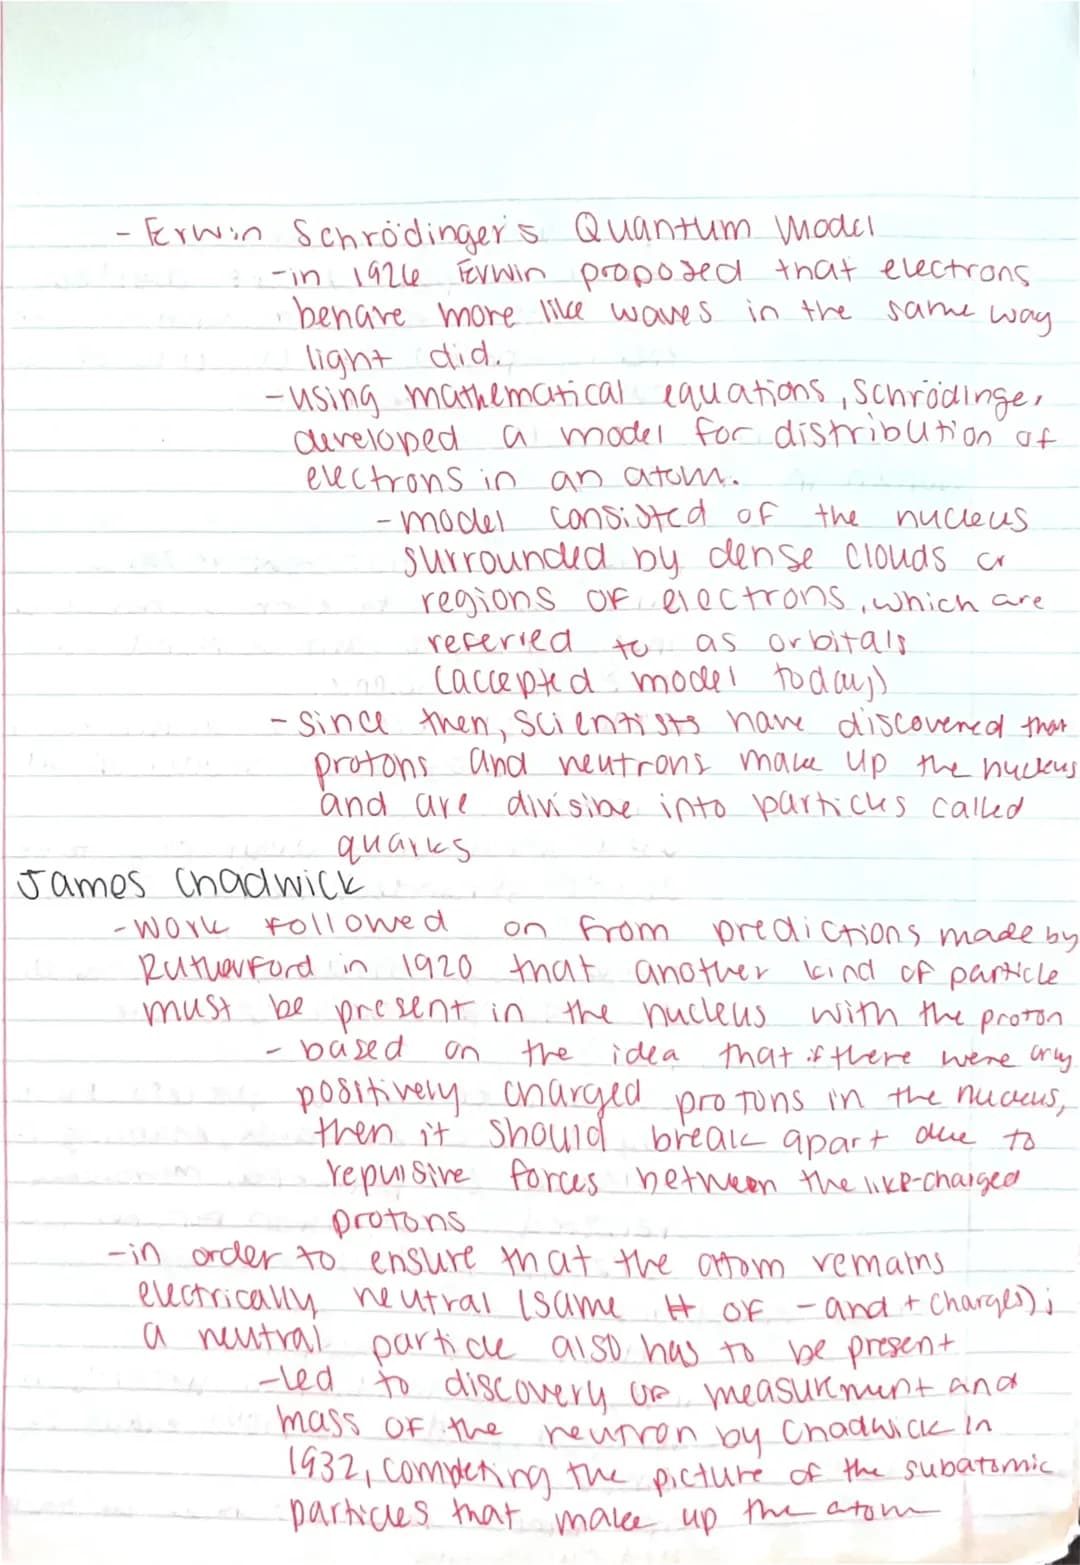 - Erwin Schrödinger's Quantum Model
-in 1926 Erwin proposed that electrons
behave more like waves in the same way
light did.
-using mathematical equations, Schrödinger
developed a model for distribution of
electrons in an atom.
-model consisted of the nucleus
surrounded by dense clouds or
regions of electrons, which are
referred to as orbitals
(accepted model today)
-since then, scientists have discovered that
protons and neutrons make up the nucleus
and are divisible into particles called
quarks
James Chadwick
-work followed on from predictions made by
Rutherford in 1920 that another kind of particle
must be present in the nucleus with the proton
- based on the idea that if there were only
positively charged protons in the nucleus,
then it should break apart due to
repulsive forces between the like-charged
protons
-in order to ensure that the atom remains
electrically neutral (same # of - and + charges);
a neutral particle also has to be present
-led to discovery of measurment and
mass of the neutron by Chadwick in
1932, completing the picture of the subatomic
particles that make up the atom